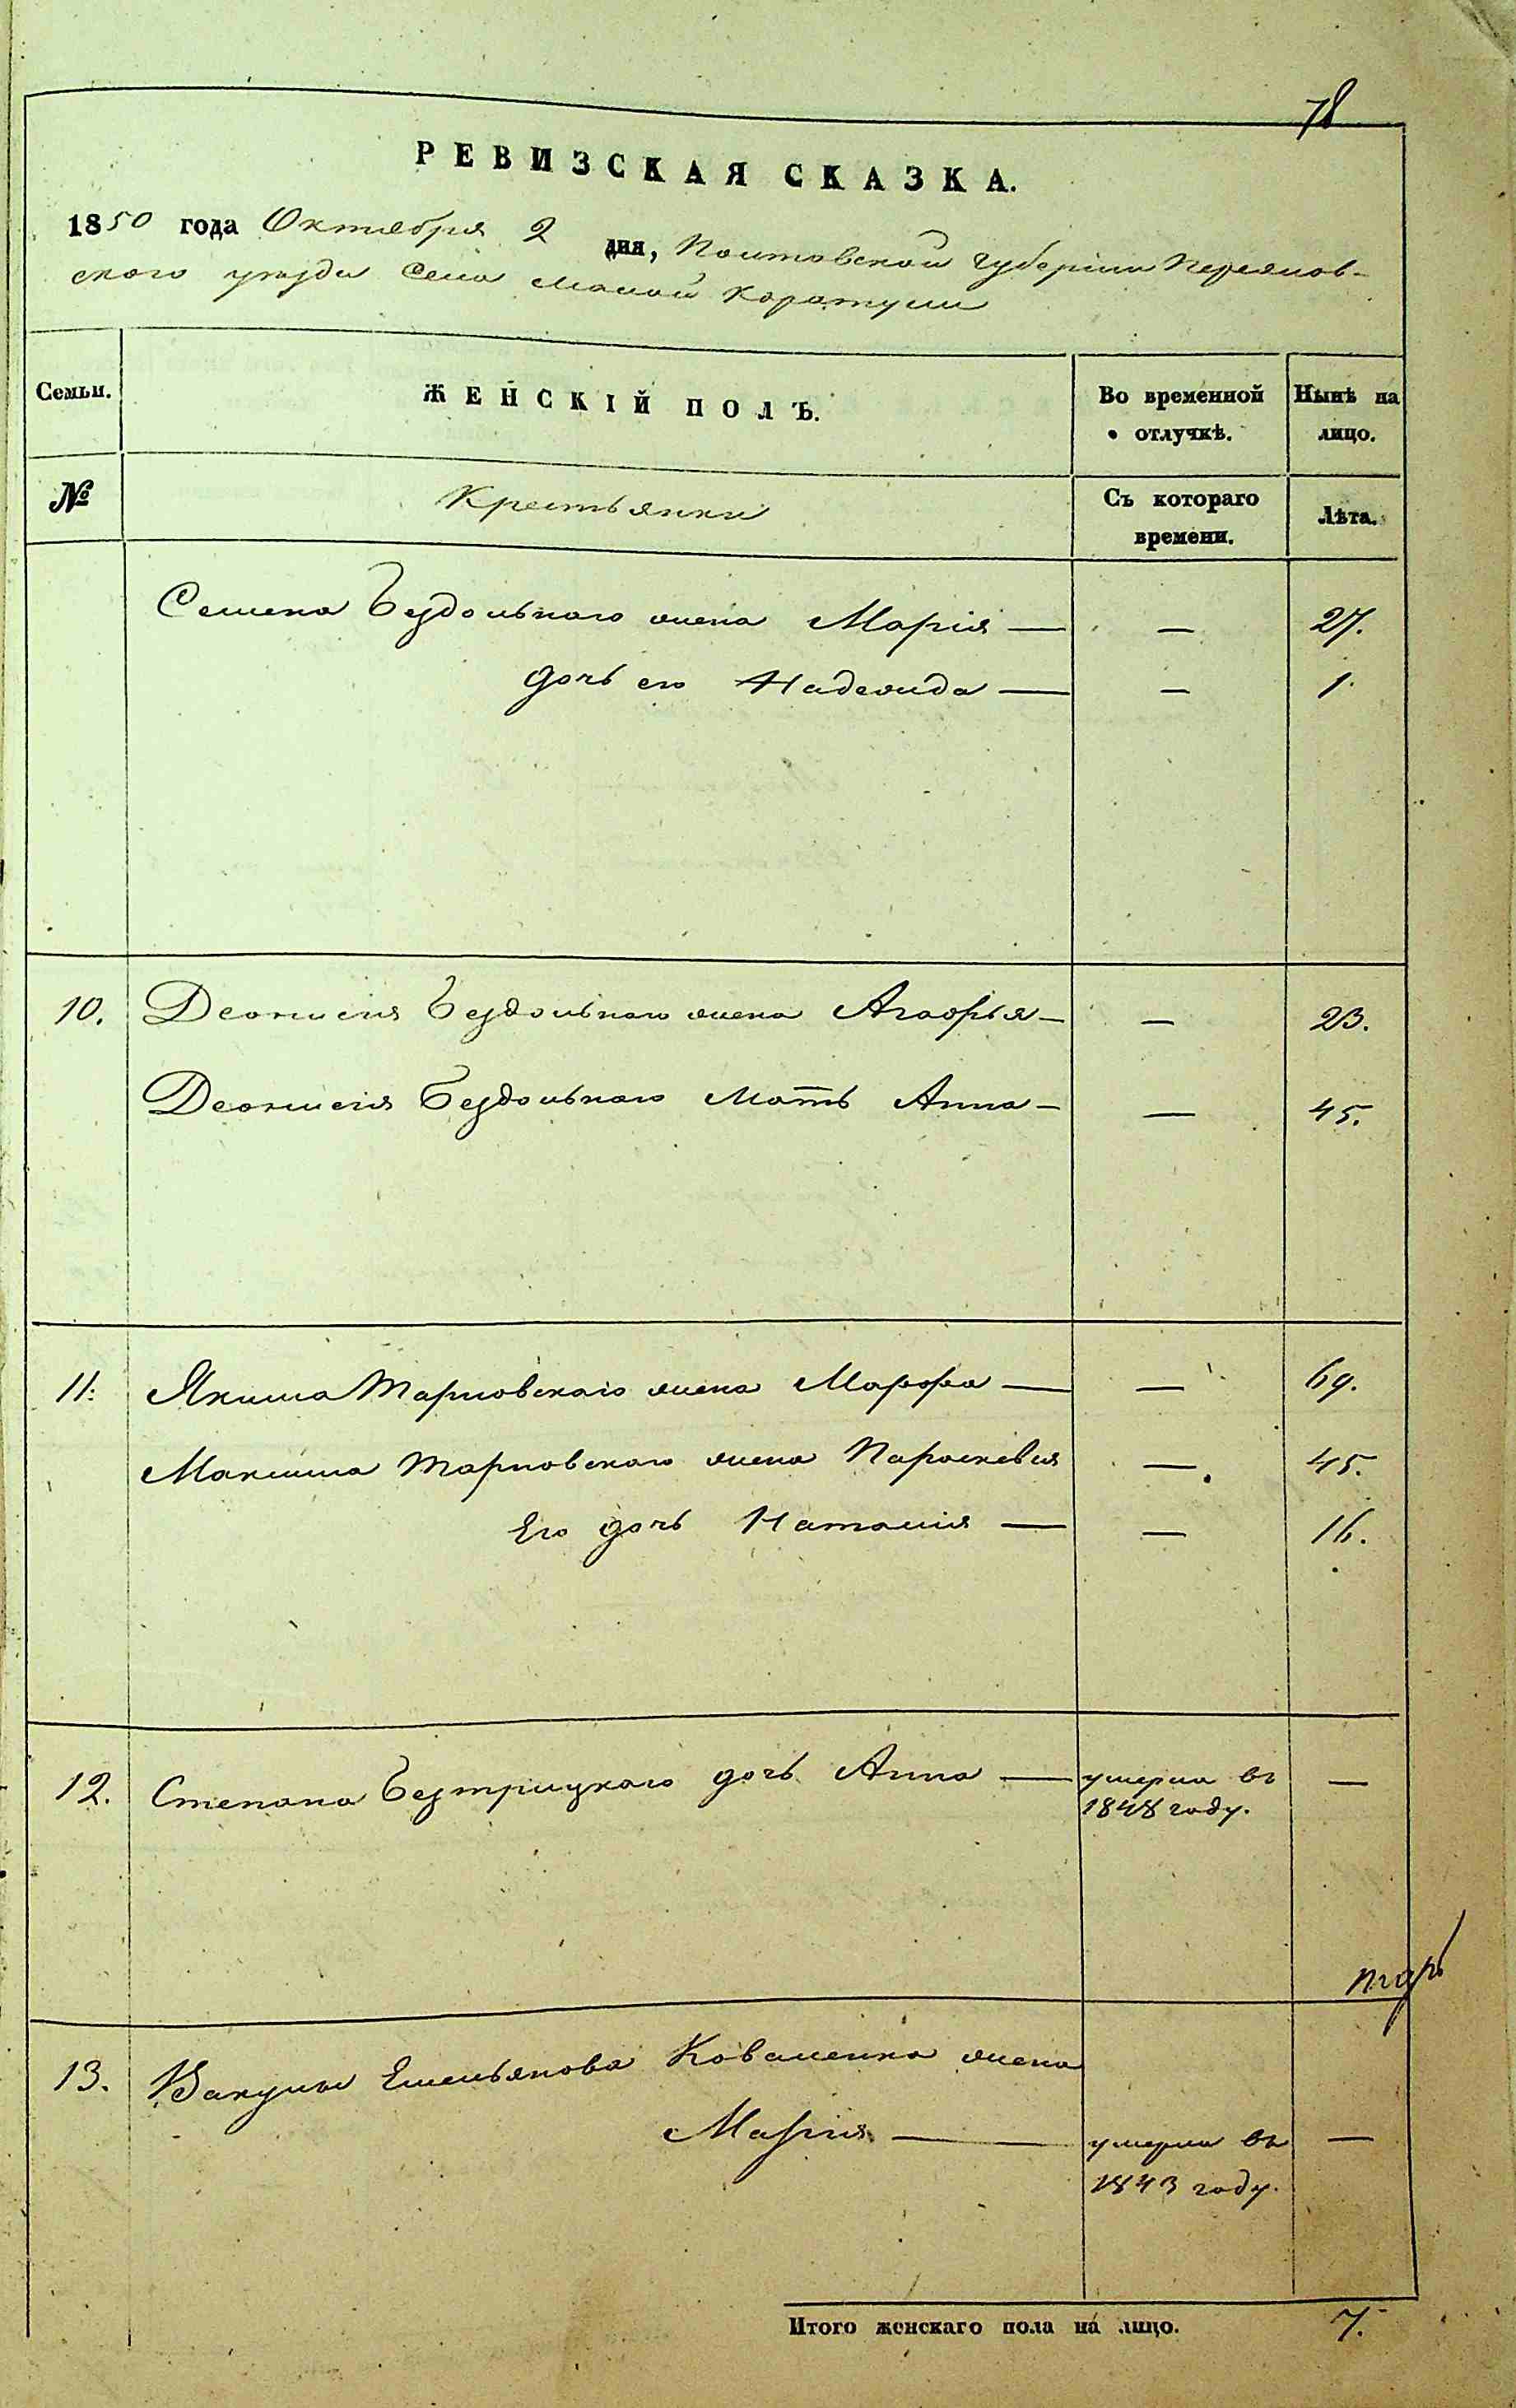 78
РЕВИЗСКАЯ СКАЗКА.
1850 года Октября 2 дня, Полтавской губерніи Переяслов-
ского уезда села малой каратули
Семьи.
ЖЕНСКІЙ ПОЛЪ.
Во временной отлучкѣ.
Нынѣ на лицо.
№
Крестьянки
Съ котораго времени.
Лѣта.
Семена Бездольнаго жена Марія — — 27.
дочь его Надежда — — 1.
10. Деонисія Бездольнаго жена Агафья — — 23.
Деонисія Бездольнаго мать Анна — — 45.
11. Якима Тарновскаго жена Марфа — — 69.
Максима Тарновскаго жена Параскевия — 45.
Его дочь Наталія — — 16.
12. Степана Безтрицкаго дочь Анна — умерла въ —
1848 году.
13. Вакулы Емельянова Коваленка жена
Марія — умерла въ —
1843 году.
Итого женскаго пола на лицо. 7.